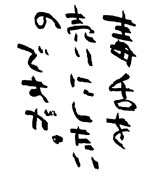 毒舌を
売りにしたい
のですだ。